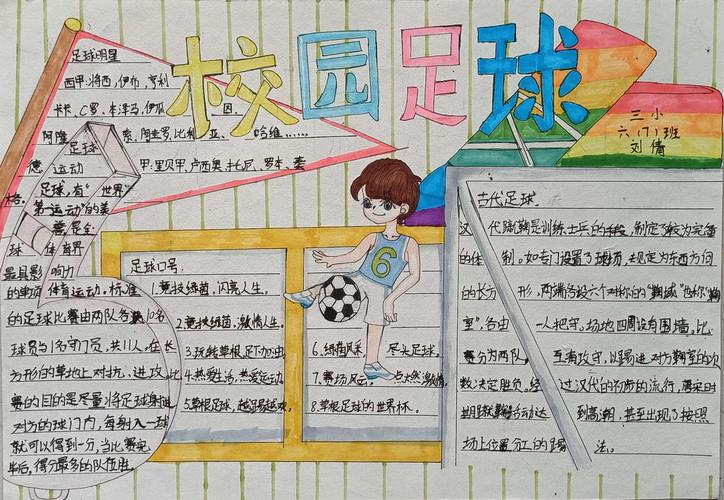 校园足球
三小
六(7)班
刘倩
足球明星
西甲:将西,伊布,亨利
卡卡、C罗、本泽马,伊瓜 因.
阿隆 索、陶奎罗、比利亚、 哈维……
德 甲:里贝甲、卢西奥、扎尼、罗本、
足球
运动
足球,有“世界
第一运动”的美
誉,是全
球 体育界
最具影 响力
的单项 体育运动,标准
的足球比赛由两队各 10名
球员与1名守门员,共11人,在长
方形的草地上对抗、进攻,比
赛的目的是尽量将足球射进
对方的球门内,每射入一球
就可以得到一分,当比赛完
毕后,得分最多的队伍胜.
足球口号:
1.竞技绿茵,闪亮人生.
2.竞技绿茵,激情人生.
3.玩转草根,足下功由
4.热爱生活,热爱运动.
5.草根足球,越踢越欢.
6.绿茵风采 尽头足球.
7.赛场风云. 点燃激情.
8.草根足球的世界杯.
古代足球.
汉 代蹴鞠是训练士兵的手段,制定了较为完备
的体 制。如专门设置了球场,规定为东西方向
的长方 形,两端各设六个对称的“鞠域”也称“鞠
室”,各由 一人把守。场地四周设有围墙,比
赛分为两队, 互有攻守,以踢进对方鞠室的次
数决定胜负。经 过汉代的初步的流行,唐宋时
期蹴鞠活动达 到高潮,甚至出现了按照
场上位置分工的踢 法。